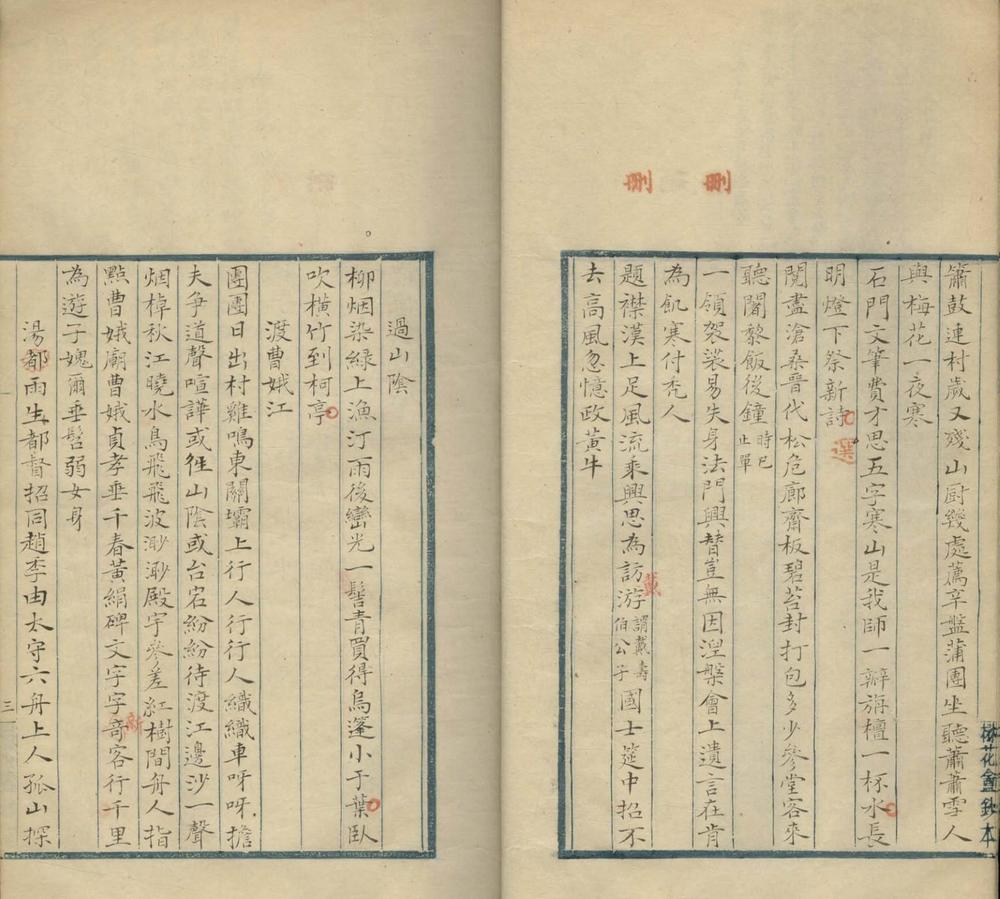 刪
刪
簫鼓連村歲又殘山廚幾處薦辛盤蒲團坐聽蕭蕭雪人
與梅花一夜寒
石門文筆費才思五字寒山是我師一瓣旃檀一杯水長
明燈下祭新詩
選
閱盡滄桑晉代松危廊齋板碧苔封打包多少參堂客來
聽闍黎飯後鐘時已止單
一領袈裟易失身法門興替豈無因涅槃會上遺言在肯
為飢寒付禿人
題襟漢上足風流乘興思為訪戴游謂戴壽伯公子國士筵中招不
去高風忽憶政黃牛
林花盦鈔本
過山陰
柳烟染綠上漁汀雨後巒光一髻青買得烏篷小于葉臥
吹橫竹到柯亭
渡曹娥江
團團日出村雞鳴東關壩上行人行行人織織車呀呀擔
夫爭道聲喧譁或徃山陰或台宕紛紛待渡江邊沙一聲
烟棹秋江曉水鳥飛飛波渺渺殿宇參差紅樹間舟人指
點曹娥廟曹娥貞孝垂千春黃絹碑文字字奇新客行千里
為遊子媿爾垂髫弱女身
湯都雨生都督招同趙季由太守六舟上人孤山探
三